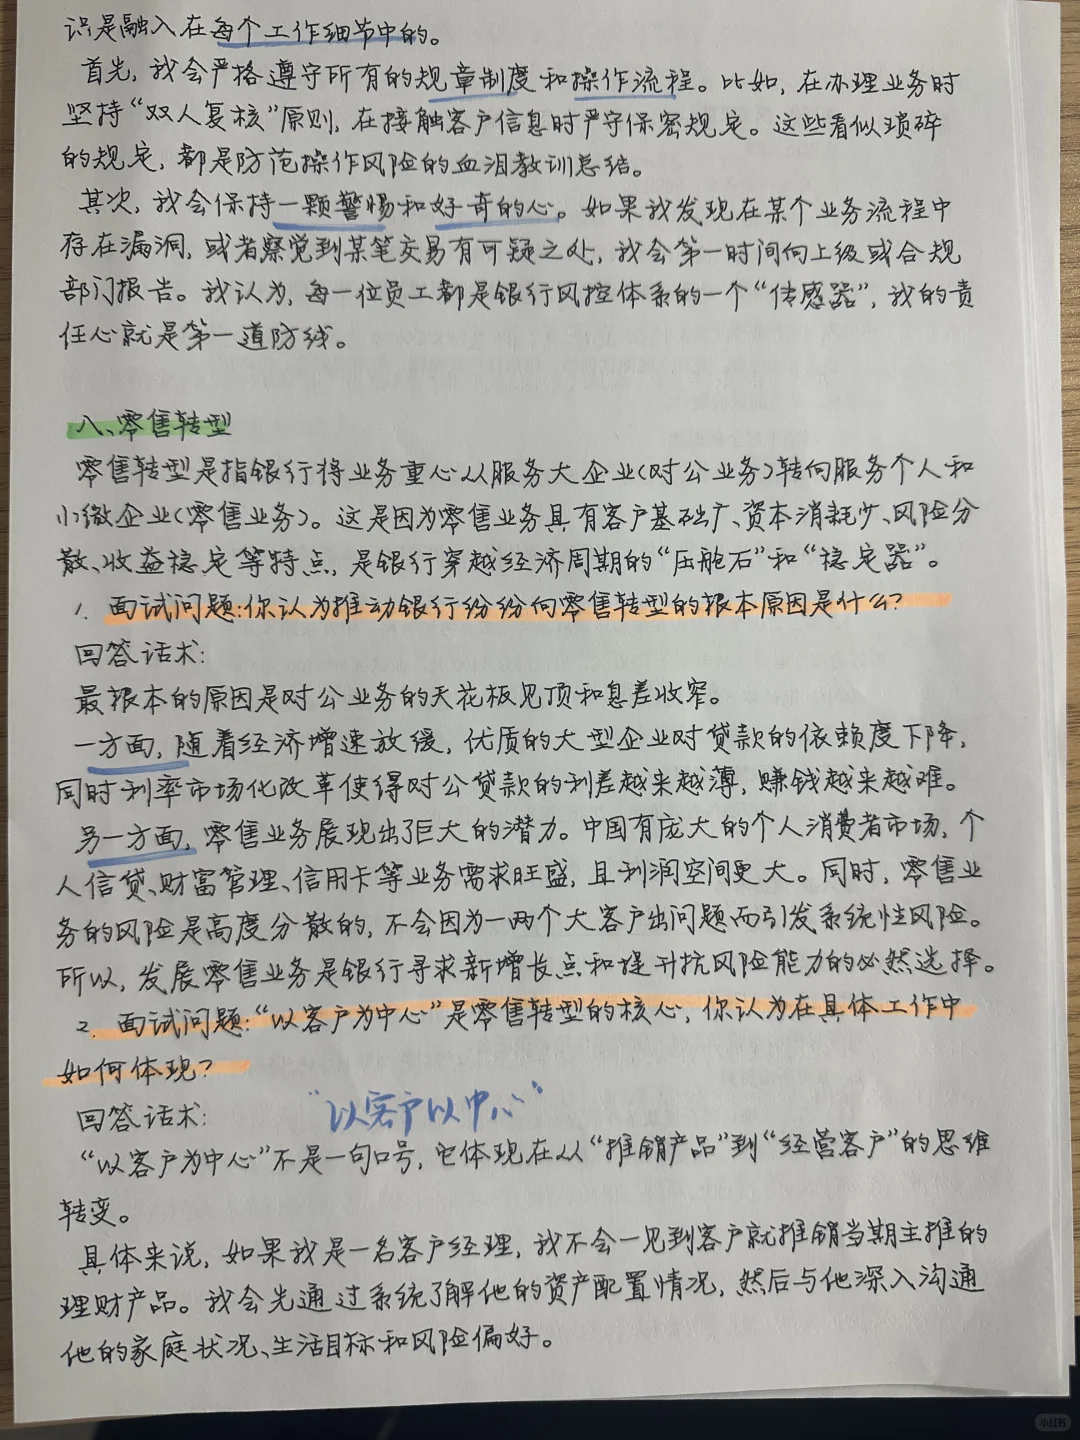 识是融入在每个工作细节中的。
首先,我会严格遵守所有的规章制度和操作流程。比如,在办理业务时
坚持“双人复核”原则,在接触客户信息时严守保密规定。这些看似琐碎
的规定,都是防范操作风险的血泪教训总结。
其次,我会保持一颗警惕和好奇的心。如果我发现在某个业务流程中
存在漏洞,或者察觉到某笔交易有可疑之处,我会第一时间向上级或合规
部门报告。我认为,每一位员工都是银行风控体系的一个“传感器”,我的责
任心就是第一道防线。
八、零售转型
零售转型是指银行将业务重心从服务大企业(对公业务)转向服务个人和
小微企业(零售业务)。这是因为零售业务具有客户基础广、资本消耗少、风险分
散、收益稳定等特点,是银行穿越经济周期的“压舱石”和“稳定器”。
1. 面试问题:你认为推动银行纷纷向零售转型的根本原因是什么?
回答话术:
最根本的原因是对公业务的天花板见顶和息差收窄。
一方面,随着经济增速放缓,优质的大型企业对贷款的依赖度下降,
同时利率市场化改革使得对公贷款的利差越来越薄,赚钱越来越难。
另一方面,零售业务展现出了巨大的潜力。中国有庞大的个人消费者市场,个
人信贷、财富管理、信用卡等业务需求旺盛,且利润空间更大。同时,零售业
务的风险是高度分散的,不会因为一两个大客户出问题而引发系统性风险。
所以,发展零售业务是银行寻求新增长点和提升抗风险能力的必然选择。
2. 面试问题:“以客户为中心”是零售转型的核心,你认为在具体工作中
如何体现?
回答话术:
“以客户以中心”
“以客户为中心”不是一句口号,它体现在从“推销产品”到“经营客户”的思维
转变。
具体来说,如果我是一名客户经理,我不会一见到客户就推销当期主推的
理财产品。我会先通过系统了解他的资产配置情况,然后与他深入沟通
他的家庭状况、生活目标和风险偏好。
小红书